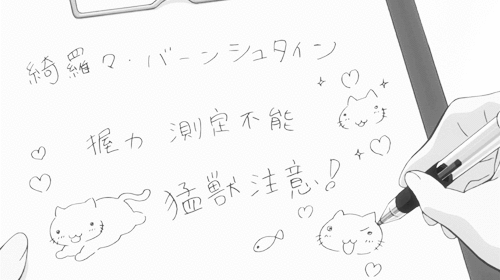 綺羅々・バーンシュタイン
握力 測定不能
猛獣注意!